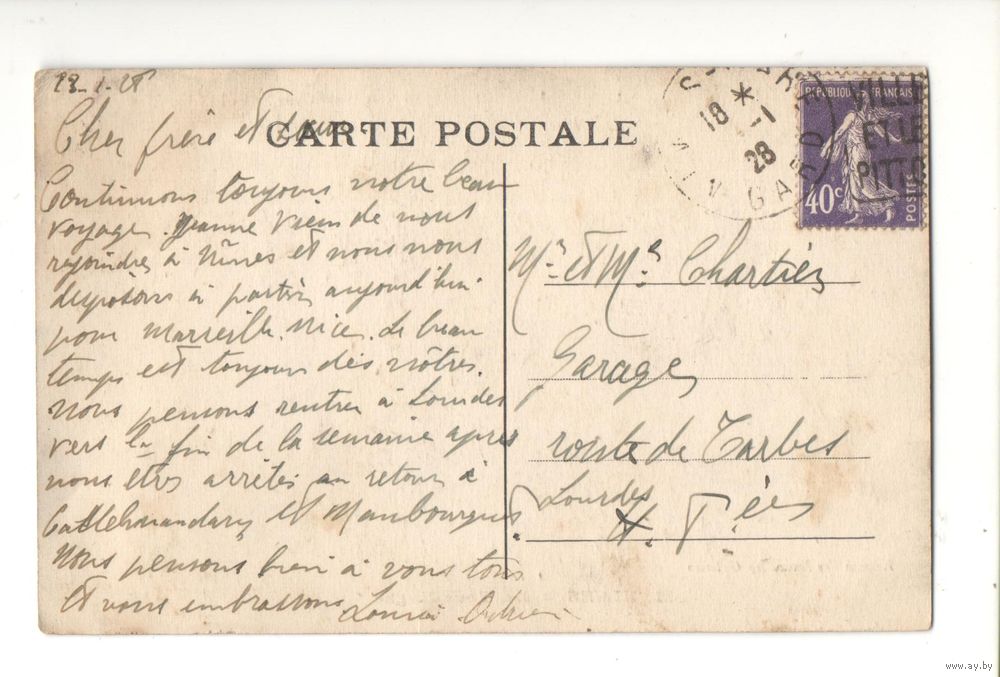 23-1-28
Cher frère et
CARTE POSTALE
Continuons toujours notre beau
voyage. Jeanne vien de nous
rejoindre à Nîmes et nous nous
disposons à partir aujourd'hui
pour Marseille. Nice. Le beau
temps est toujours des nôtres.
Nous pensons rentrer à Lourdes
vers la fin de la semaine apres
nous etres arrêtés au retour à
et Maubourguet.
Nous pensons bien à vous tous
et vous embrassons
18 * -1
28
GARD
REPUBLIQUE FRANÇAISE
40c
POSTES
VILLE
ET LE
PITTO
Mr et Me Chartier
Garage
route de Tarbes
Lourdes
H. Pées
www.ay.by